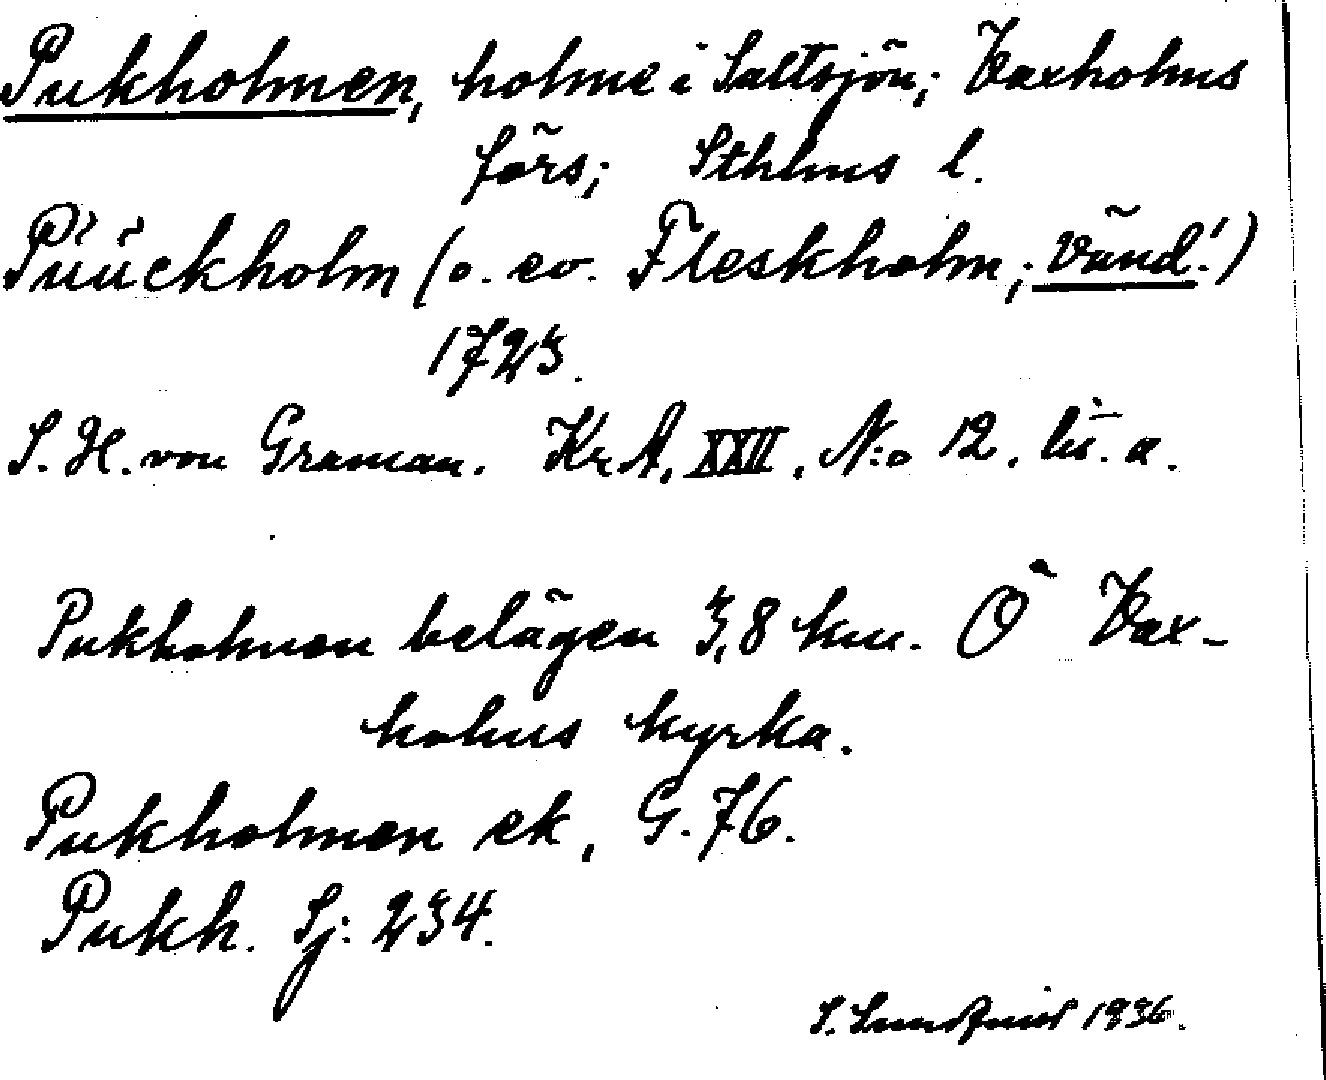 Pukholmen, holme i Saltsjön; Vaxholms
förs; Sthlms l.
Püückholm (o. ev. Fleskholm; Vänd!)
1723.
S. H. von Graman. KrA, XXII, N:o 12. lit. a.
Pukholmen belägen 3,8 km. O Vax-
holms kyrka.
Pukholmen ek, G. 76.
Pukh. Sj: 234.
S. 1936.